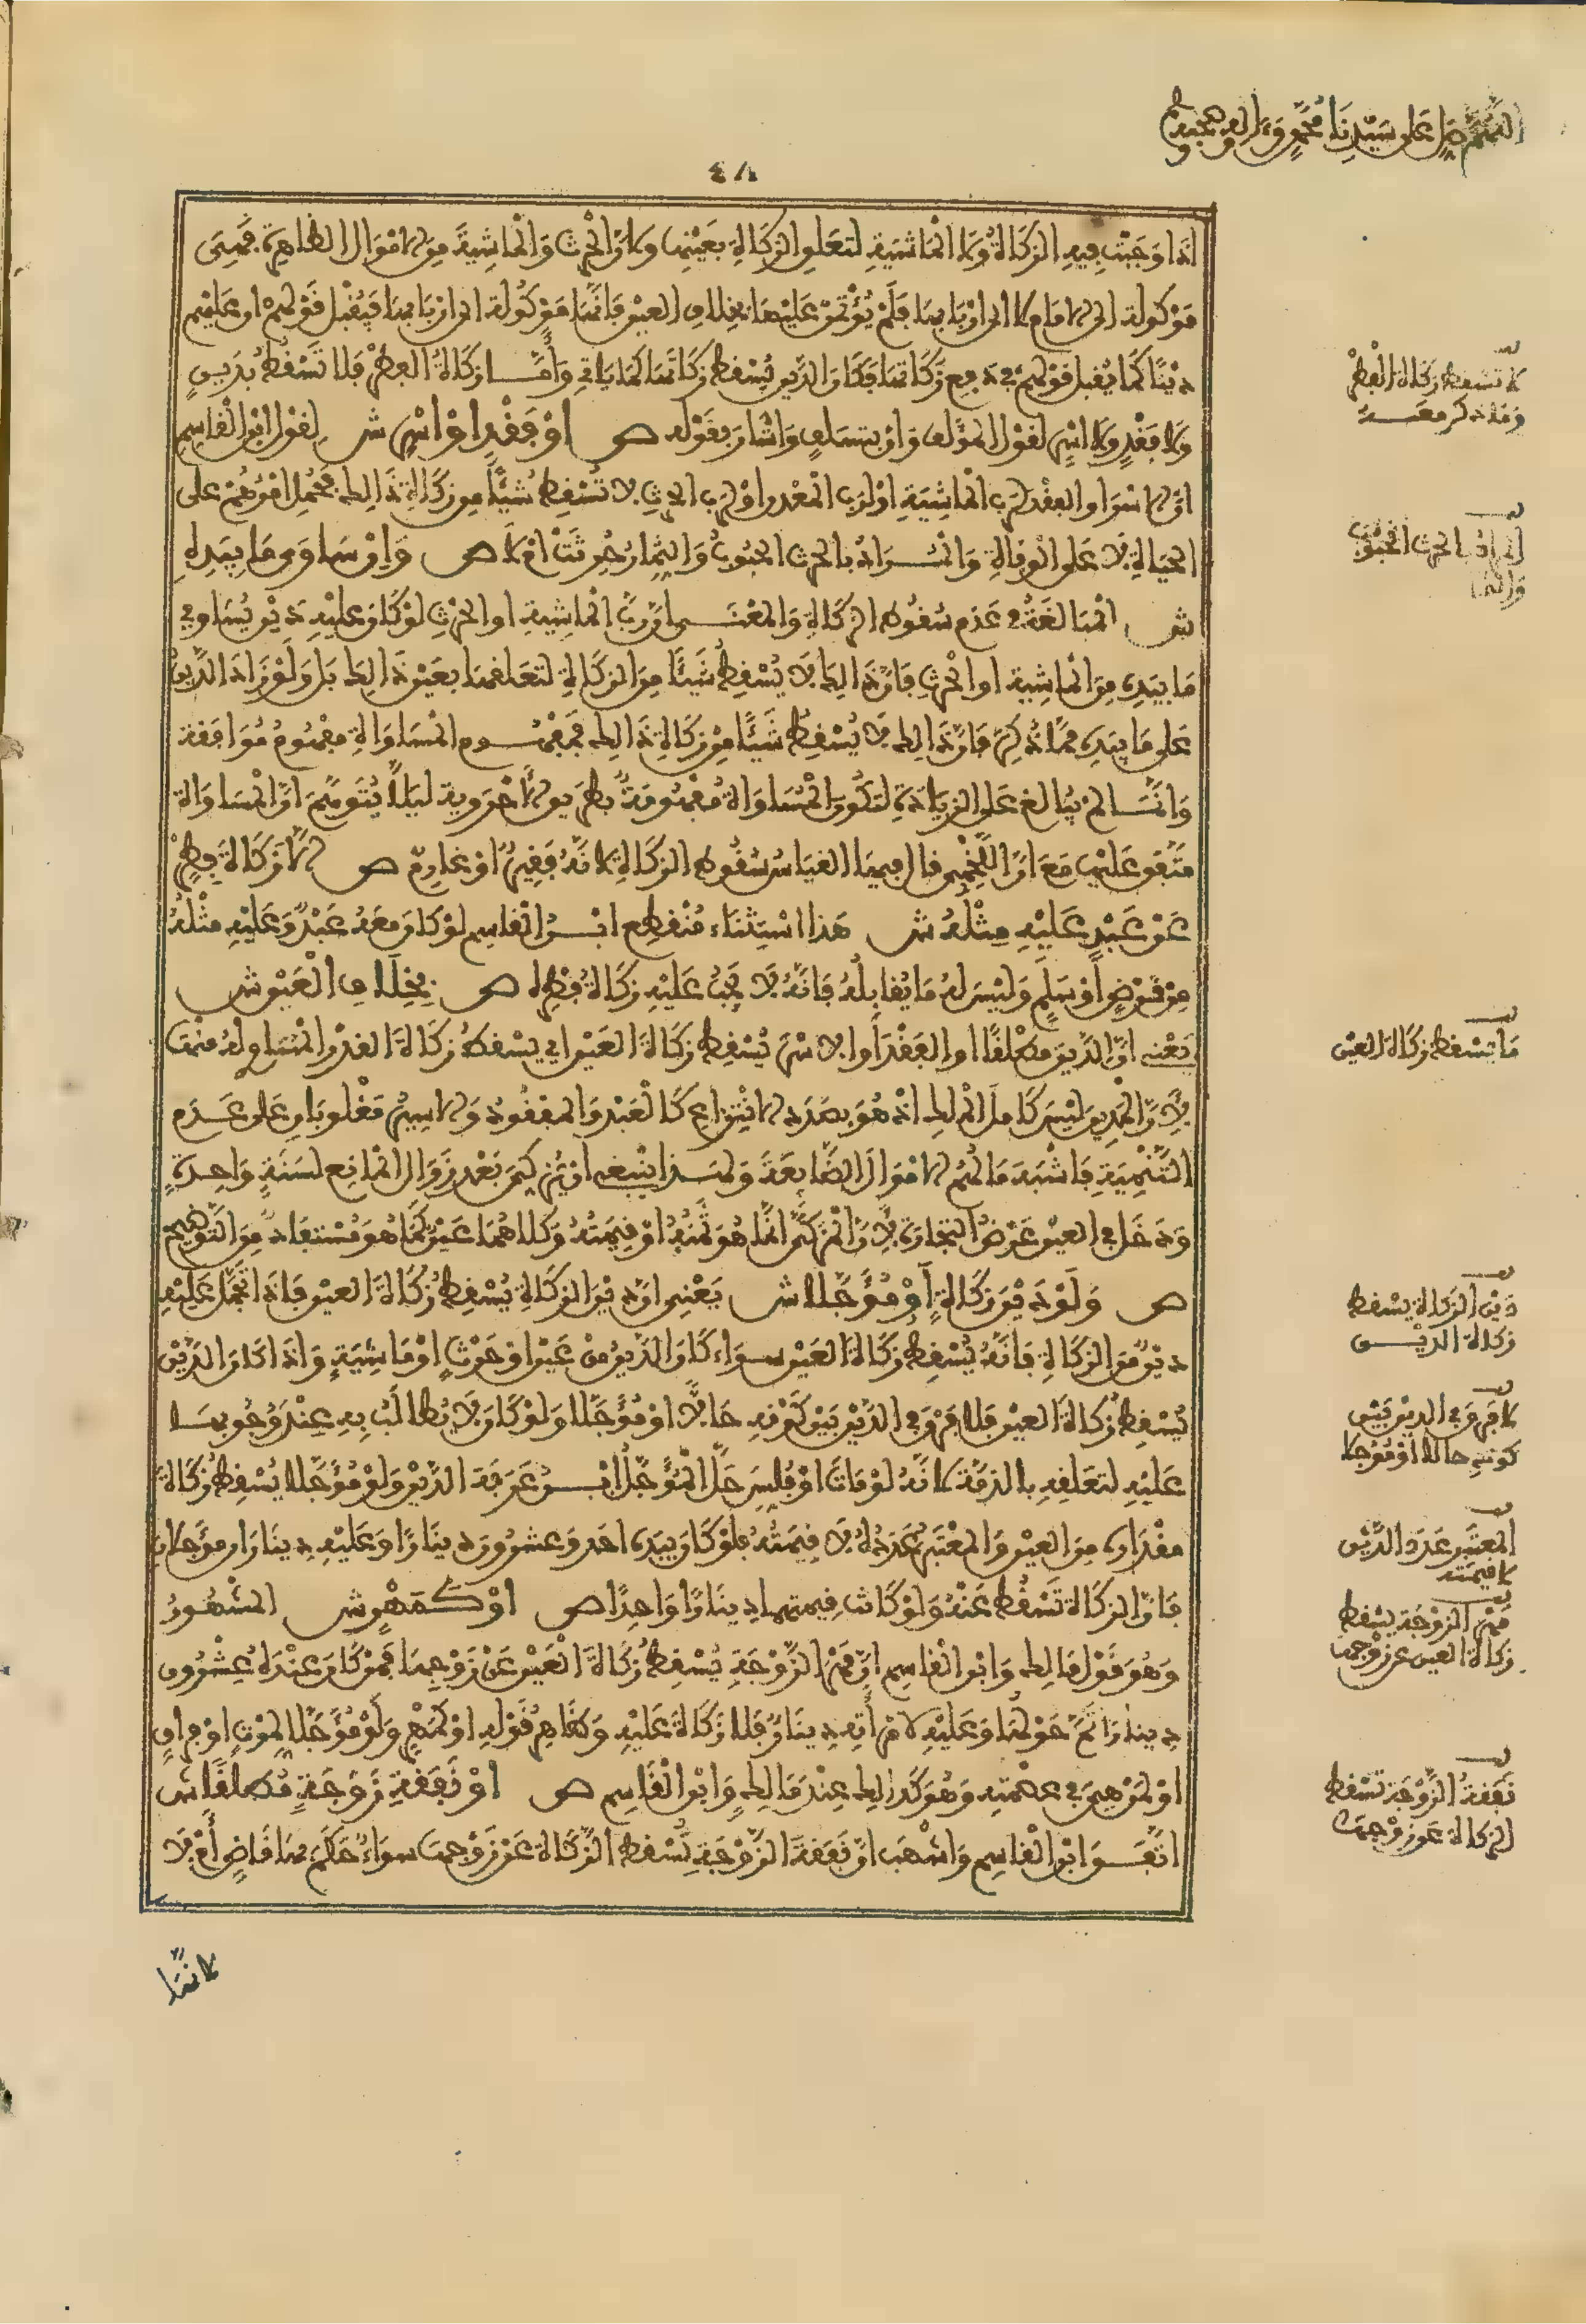 اللهم صل على سيدنا محمد وءاله وصحبه
٤٨
اذا وجبت فيه الزكاة ولا الماشية لتعلق الزكاة بعينها ولان الحرث والماشية من الاموال الظاهرة فهي
موكولة الى الامام لا الى اربابها فلم يؤتمن عليها بخلاف العين فانها موكولة الى اربابها فيقبل قولهم ان عليهم
دينا كما يقبل قولهم في دفع زكاتها فكان الدين يسقط زكاتها كما ياتي وأما زكاة الفطر فلا تسقط بدين
ولا بفقد ولا اسر لقول المؤلف وان بتسلف واشار بقوله ص او بفقد او اسر ش لقول ابن القاسم
ان الاسر او الفقد لرب الماشية او لرب المعدن او لرب الحرث لا تسقط شيئا من زكاة ذالك فيحمل امرهم على
الحياة لا على الوفاة والمراد بالحرث الحبوب والثمار حرثت ام لا ص وان ساوى ما بيده
ش المبالغة في عدم سقوط الزكاة والمعنى ان رب الماشية او الحرث لو كان عليه دين يساوي
ما بيده من الماشية او الحرث فان ذالك لا يسقط شيئا من الزكاة لتعلقها بعين ذالك بل ولو زاد الدين
على ما بيده مما ذكر فان ذالك لا يسقط شيئا من زكاة ذالك فمفهوم المساواة مفهوم موافقة
وانما لم يبالغ على الزيادة لتكون المساواة مفهومة بطريق الأحروية ليلا يتوهم ان المساواة
متفق عليها مع ان اللخمي قال فيها القياس سقوط الزكاة لانه فقير او غارم ص الا زكاة فطر
عن عبد عليه مثله ش هذا استثناء منقطع ابن القاسم لو كان معه عبد وعليه مثله
من قرض أو سلم وليس له ما يقابله فانه لا يجب عليه زكاة فطره ص بخلاف العين ش
يعني ان الدين مطلقا او الفقد او الاسر يسقط زكاة العين اي يسقط زكاة القدر المساوي له منها
لان المدين ليس كامل الملك اذ هو بصدد الانتزاع كالعبد والمفقود والاسير مغلوبان على عدم
التنمية فاشبه مالهم الاموال الضايعة ولهذا ينبغي ان يزكي بعد زوال المانع لسنة واحدة
ودخل في العين عرض التجارة لان المزكى انما هو ثمنه او قيمته وكلاهما عين كما هو مستفاد من التقويم
ص ولو دين زكاة أو مؤجلا ش يعني ان دين الزكاة يسقط زكاة العين فاذا تجمل عليه
دين من الزكاة فانه يسقط زكاة العين سواء كان الدين من عين او حرث او ماشية واذا كان الدين
يسقط زكاة العين فلا فرق في الدين بين كونه حالا او مؤجلا ولو كان لا يطالب به عند وجوبها
عليه لتعلقه بالذمة لانه لو مات او فلس حل المؤجل ابن عرفة الدين ولو مؤجلا يسقط زكاة
مقداره من العين والمعتبر عدده لا قيمته فلو كان بيده احد وعشرون دينارا وعليه ديناران مؤجلان
فان الزكاة تسقط عنه ولو كانت قيمتهما دينارا واحدا ص او كمهر ش المشهور
وهو قول مالك وابن القاسم ان مهر الزوجة يسقط زكاة العين عن زوجها فمن كان عنده عشرون
دينارا تم حولها وعليه لامرأته دينار فلا زكاة عليه وظاهر قوله او كمهر ولو مؤجلا لموت او فراق
او لمن هي في عصمته وهو كذالك عند مالك وابن القاسم ص او نفقة زوجة مطلقا ش
اتفق ابن القاسم واشهب ان نفقة الزوجة تسقط الزكاة عن زوجها سواء حكم بها قاض أم لا
لانها
لا تسقط زكاة الفطر
وما ذكر معه
المراد بالحرث الحبوب
والثمار
ما يسقط زكاة العين
دين الزكاة يسقط
زكاة الدين
لا فرق في الدين بين
كونه حالا او مؤجلا
المعتبر عدد الدين
لا قيمته
مهر الزوجة يسقط
زكاة العين عن زوجها
نفقة الزوجة تسقط
الزكاة عن زوجها